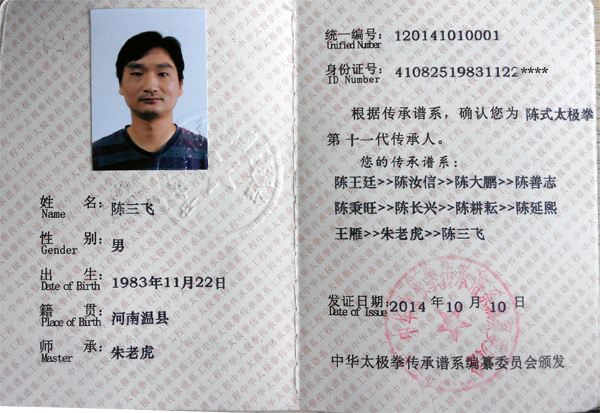 姓 名：陈三飞
Name
性 别：男
Gender
出 生：1983年11月22日
Date of Birth
籍 贯：河南温县
Place of Birth
师 承：朱老虎
Master
统一编号：120141010001
Unified Number
身份证号：41082519831122****
ID Number
根据传承谱系，确认您为 陈式太极拳
第 十一代传承人。
您的传承谱系：
陈王廷>>陈汝信>>陈大鹏>>陈善志
陈秉旺>>陈长兴>>陈耕耘>>陈延熙
王雁>>朱老虎>>陈三飞
发证日期：2014 年 10 月 10 日
Date of Issue
中华太极拳传承谱系编纂委员会颁发